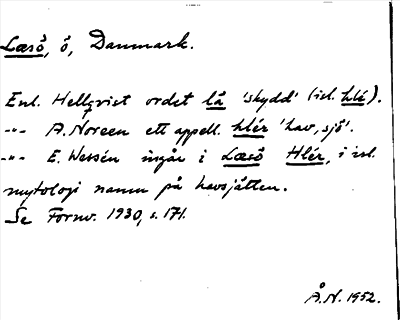 Læsö, ö, Danmark.
Enl. Hellqvist ordet lä 'skydd' (isl. hlé).
-"- A. Noreen ett appell. hlér 'hav, sjö'.
-"- E. Wessén ingår i Læsö Hlér, i isl.
mytologi namn på havsjätten.
Se Fornv. 1930, s. 171.
Å.N. 1952.